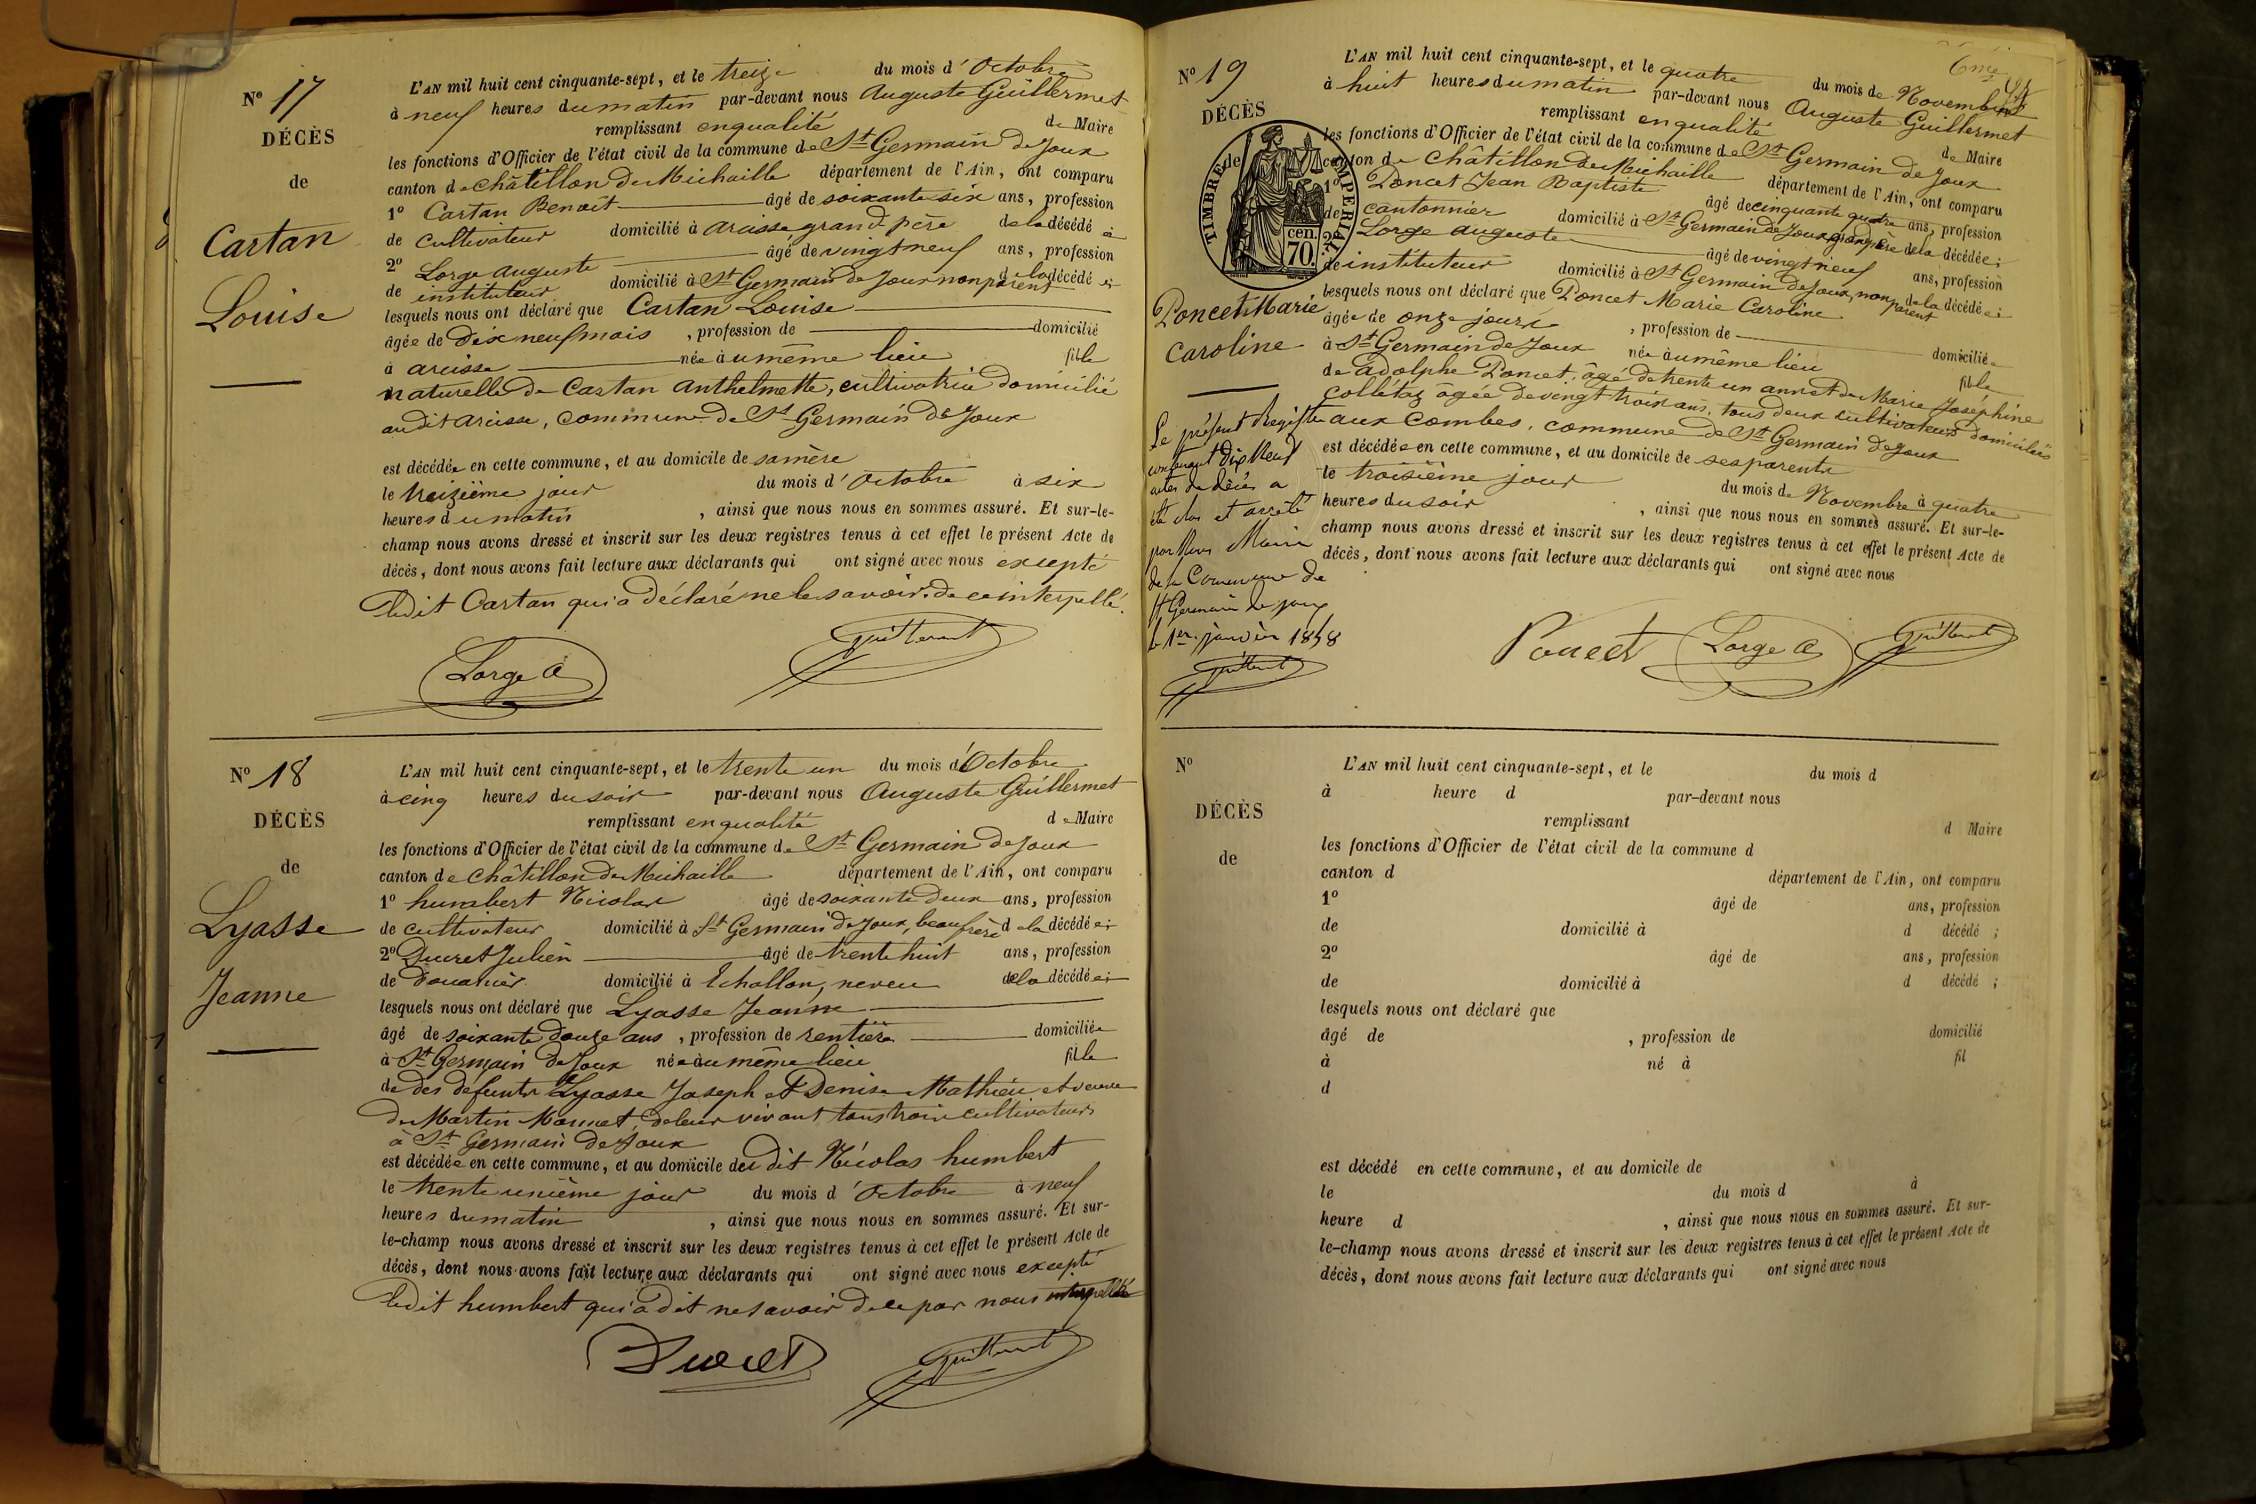 N° 17
DÉCÈS
de
Cartan
Louise
L'AN mil huit cent cinquante-sept, et le treize du mois d'Octobre
à neuf heures du matin par-devant nous Auguste Guillermet
remplissant en qualité de Maire
les fonctions d'Officier de l'état civil de la commune de St Germain de Joux
canton de Châtillon de Michaille département de l'Ain, ont comparu
1° Cartan Benoît âgé de soixante six ans, profession
de cultivateur domicilié à arcisse grand père de la décédée
2° Lorge auguste âgé de vingt neuf ans, profession
de instituteur domicilié à St Germain de Joux non parent de la décédée ;
lesquels nous ont déclaré que Cartan Louise
âgée de dix neuf mois , profession de domicilié
à arcisse née au même lieu fille
naturelle de Cartan Anthelmette, cultivatrice domicilié
audit arcisse, commune de St Germain de Joux
est décédée en cette commune, et au domicile de sa mère
le treizième jour du mois d'Octobre à six
heures du matin , ainsi que nous nous en sommes assuré. Et sur-le-
champ nous avons dressé et inscrit sur les deux registres tenus à cet effet le présent Acte de
décès, dont nous avons fait lecture aux déclarants qui ont signé avec nous excepté
ledit Cartan qui a déclaré ne le savoir de ce interpellé.
Lorge A
Guillermet
N° 18
DÉCÈS
de
Lyasse
Jeanne
L'AN mil huit cent cinquante-sept, et le trente un du mois d'Octobre
à cinq heures du soir par-devant nous Auguste Guillermet
remplissant en qualité de Maire
les fonctions d'Officier de l'état civil de la commune de St Germain de Joux
canton de Châtillon de Michaille département de l'Ain, ont comparu
1° humbert Nicolas âgé de soixante deux ans, profession
de cultivateur domicilié à St Germain de Joux, beaufrère de la décédée ;
2° Ducret Julien âgé de trente huit ans, profession
de Douanier domicilié à Echallon, neveu de la décédée ;
lesquels nous ont déclaré que Lyasse Jeanne
âgé de soixante douze ans , profession de rentière domiciliée
à St Germain de Joux née au même lieu fille
de des défunts Lyasse Joseph et Denise Mathieu et veuve
de Martin Monnet, de leur vivant tous trois cultivateurs
à St Germain de Joux
est décédée en cette commune, et au domicile du dit Nicolas humbert
le trente unième jour du mois d'Octobre à neuf
heures du matin , ainsi que nous nous en sommes assuré. Et sur-
le-champ nous avons dressé et inscrit sur les deux registres tenus à cet effet le présent Acte de
décès, dont nous avons fait lecture aux déclarants qui ont signé avec nous excepté
ledit humbert qui a dit ne savoir de ce par nous interpellé
Ducret
Guillermet
N° 19
DÉCÈS
TIMBRE IMPERIAL
70 cen.
Poncet Marie
Caroline
6me
L'AN mil huit cent cinquante-sept, et le quatre du mois de Novembre
à huit heures du matin par-devant nous Auguste Guillermet
remplissant en qualité de Maire
les fonctions d'Officier de l'état civil de la commune de St Germain de Joux
canton de Châtillon de Michaille département de l'Ain, ont comparu
1° Poncet Jean Baptiste âgé de cinquante quatre ans, profession
de cantonnier domicilié à St Germain de Joux grand père de la décédée ;
2° Lorge auguste âgé de vingt neuf ans, profession
de instituteur domicilié à St Germain de Joux, non parent de la décédée ;
lesquels nous ont déclaré que Poncet Marie Caroline
âgée de onze jours , profession de domiciliée
à St Germain de Joux née au même lieu fille
de Adolphe Poncet, âgé de trente un ans et de Marie Joséphine
Collétaz âgée de vingt trois ans, tous deux cultivateurs domiciliés
aux Combes, commune de St Germain de Joux
est décédée en cette commune, et au domicile de ses parents
le troisième jour du mois de Novembre à quatre
heures du soir , ainsi que nous nous en sommes assuré. Et sur-le-
champ nous avons dressé et inscrit sur les deux registres tenus à cet effet le présent Acte de
décès, dont nous avons fait lecture aux déclarants qui ont signé avec nous
Poncet
Lorge A
Guillermet
Le présent Registre
contenant dix Neuf
actes de décès a
été clos et arrêté
par Nous Maire
de la Commune de
St Germain de Joux
le 1er janvier 1858
Guillermet
N°
DÉCÈS
de
L'AN mil huit cent cinquante-sept, et le du mois d
à heure d par-devant nous
remplissant d Maire
les fonctions d'Officier de l'état civil de la commune d
canton d département de l'Ain, ont comparu
1° âgé de ans, profession
de domicilié à d décédé ;
2° âgé de ans, profession
de domicilié à d décédé ;
lesquels nous ont déclaré que
âgé de , profession de domicilié
à né à fil
d
est décédé en cette commune, et au domicile de
le du mois d à
heure d , ainsi que nous nous en sommes assuré. Et sur-
le-champ nous avons dressé et inscrit sur les deux registres tenus à cet effet le présent Acte de
décès, dont nous avons fait lecture aux déclarants qui ont signé avec nous